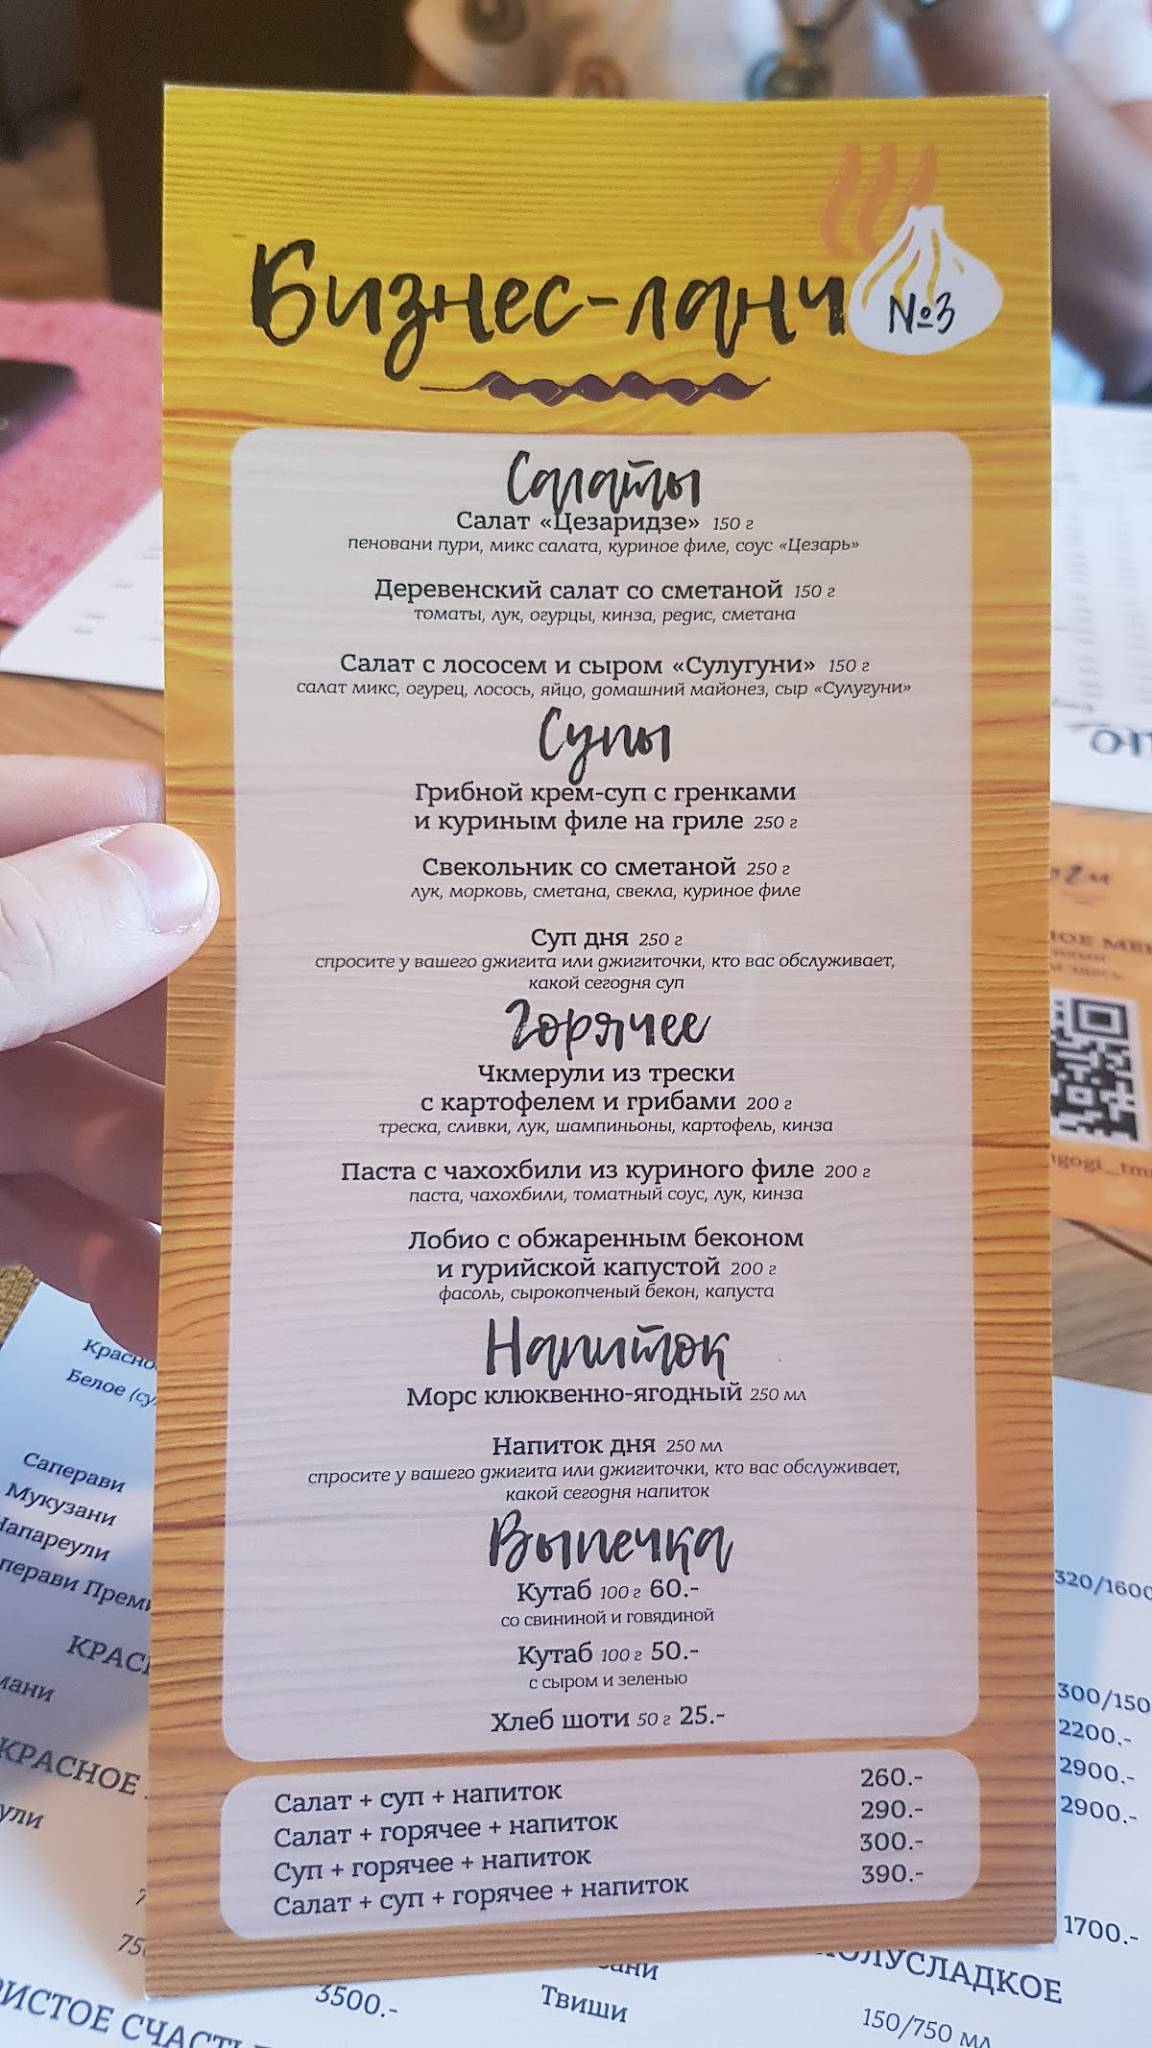 Бизнес-ланч
№3
Салаты
Салат «Цезаридзе» 150 г
пеновани пури, микс салата, куриное филе, соус «Цезарь»
Деревенский салат со сметаной 150 г
томаты, лук, огурцы, кинза, редис, сметана
Салат с лососем и сыром «Сулугуни» 150 г
салат микс, огурец, лосось, яйцо, домашний майонез, сыр «Сулугуни»
Супы
Грибной крем-суп с гренками
и куриным филе на гриле 250 г
Свекольник со сметаной 250 г
лук, морковь, сметана, свекла, куриное филе
Суп дня 250 г
спросите у вашего джигита или джигиточки, кто вас обслуживает,
какой сегодня суп
Горячее
Чкмерули из трески
с картофелем и грибами 200 г
треска, сливки, лук, шампиньоны, картофель, кинза
Паста с чахохбили из куриного филе 200 г
паста, чахохбили, томатный соус, лук, кинза
Лобио с обжаренным беконом
и гурийской капустой 200 г
фасоль, сырокопченый бекон, капуста
Напиток
Морс клюквенно-ягодный 250 мл
Напиток дня 250 мл
спросите у вашего джигита или джигиточки, кто вас обслуживает,
какой сегодня напиток
Выпечка
Кутаб 100 г 60.-
со свининой и говядиной
Кутаб 100 г 50.-
с сыром и зеленью
Хлеб шоти 50 г 25.-
Салат + суп + напиток 260.-
Салат + горячее + напиток 290.-
Суп + горячее + напиток 300.-
Салат + суп + горячее + напиток 390.-
Белое
Саперави
Мукузани
КРАСНОЕ
3500.-
Твиши
150/750 мл
320/1600
2200.-
2900.-
2900.-
1700.-